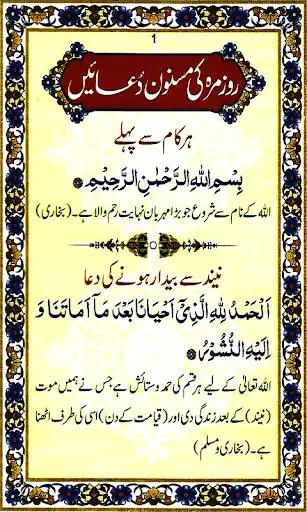 1
روزمرہ کی مسنون دُعائیں
ہر کام سے پہلے
بِسْمِ اللهِ الرَّحْمٰنِ الرَّحِيْمِ
اللہ کے نام سے شروع جو بڑا مہربان نہایت رحم والا ہے۔ (بخاری)
نیند سے بیدار ہونے کی دعا
اَلْحَمْدُ لِلّٰهِ الَّذِىْٓ اَحْيَانَا بَعْدَ مَآ اَمَاتَنَا وَ
اِلَيْهِ النُّشُوْرُ
اللہ تعالیٰ کے لیے ہر قسم کی حمد وستائش ہے جس نے ہمیں موت
(نیند) کے بعد زندگی دی اور (قیامت کے دن) اسی کی طرف اٹھنا
ہے۔ (بخاری و مسلم)